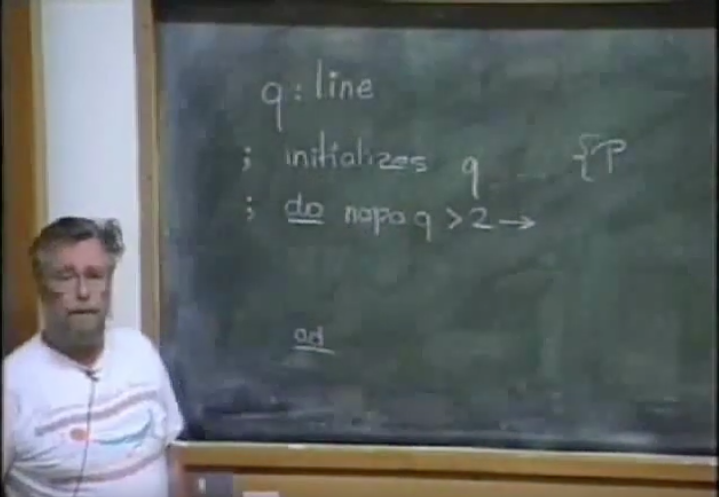 q : line
; initializes q {P
; do nopo q > 2 →
od